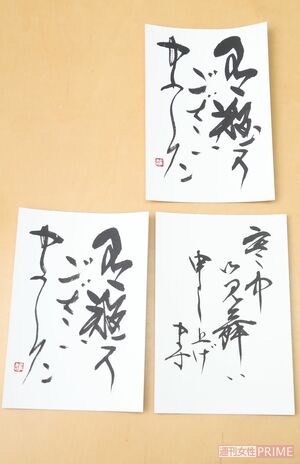 有難う
ござい
ました
有難う
ござい
ました
寒中
お見舞い
申し上げ
ます
週刊女性PRIME